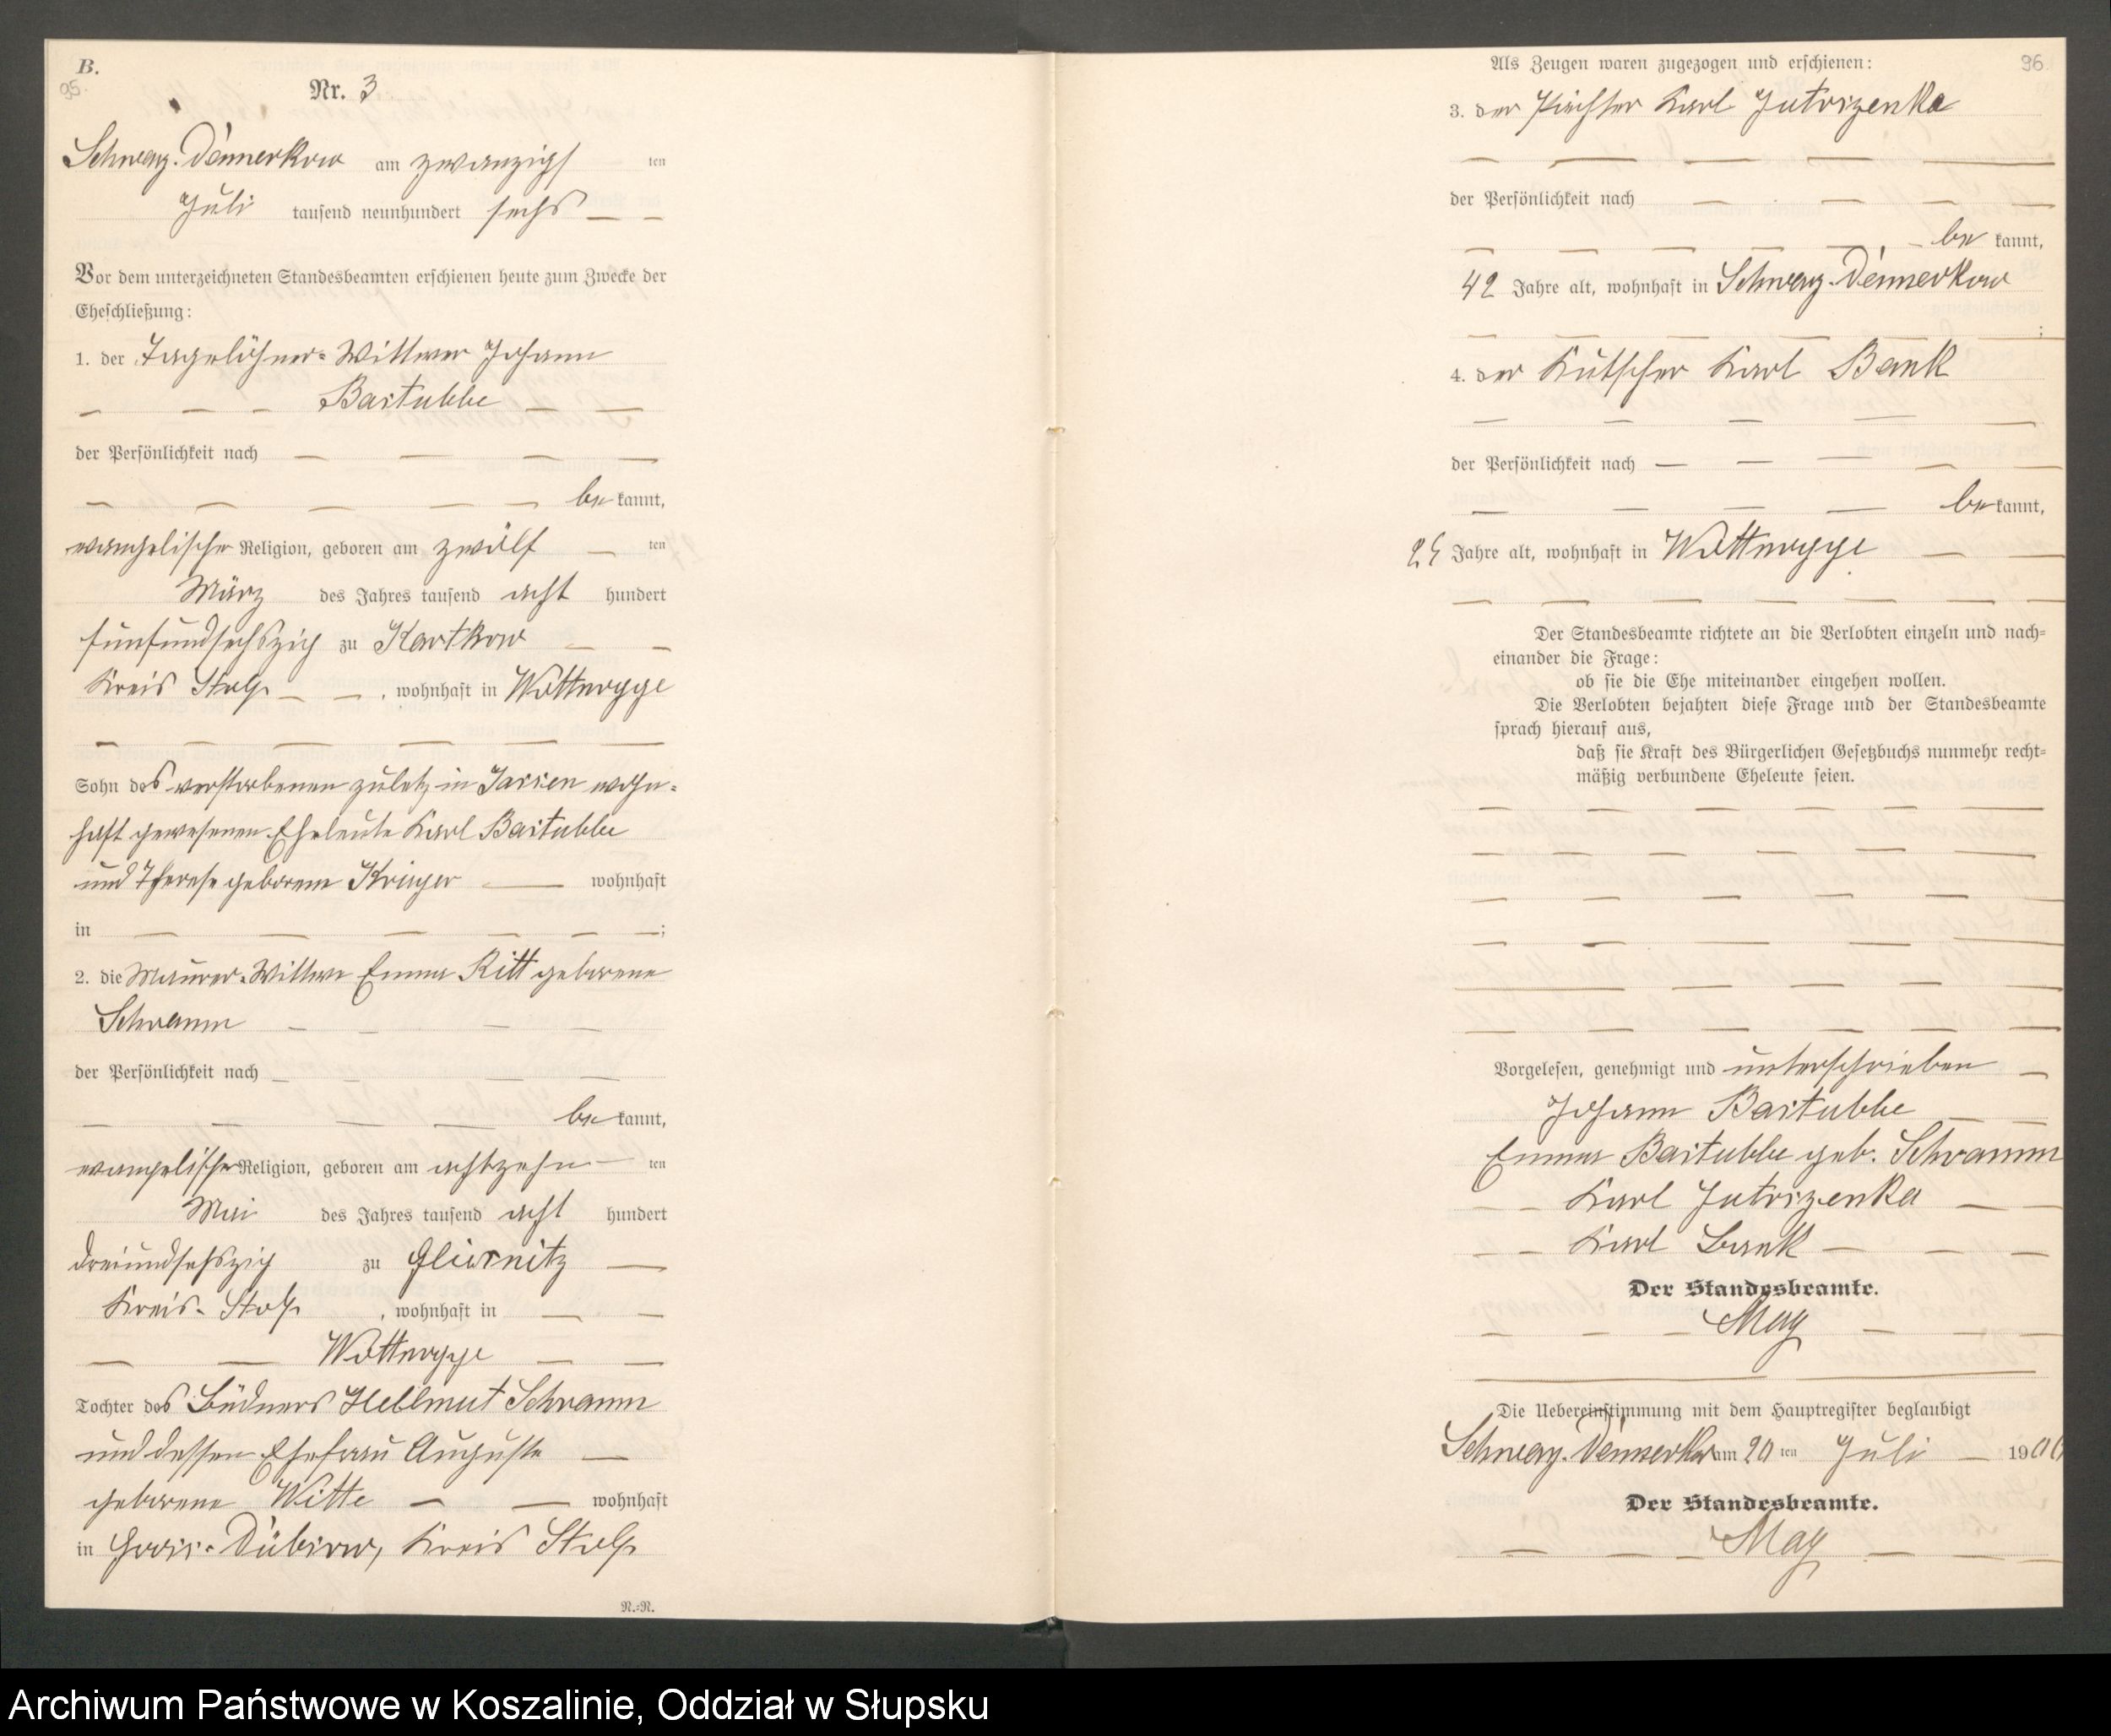 B.
95.
Nr. 3
Schwarz-Damerkow am zwanzigs ten
Juli tausend neunhundert sechs
Vor dem unterzeichneten Standesbeamten erschienen heute zum Zwecke der
Eheschließung:
1. der Tagelöhner-Wittwer Johann
Bastubbe
der Persönlichkeit nach
be kannt,
evangelischer Religion, geboren am zwölf ten
März des Jahres tausend acht hundert
fünfundsechszig zu Kartkow
Kreis Stolp, wohnhaft in Wottnogge
Sohn des verstorbenen zuletz in Jassen wohn-
haft gewesenen Eheleute Karl Bastubbe
und Therese geborene wohnhaft
in ;
2. die Maurer-Wittwe Emma Ritt geborene
Schramm
der Persönlichkeit nach
be kannt,
evangelischer Religion, geboren am achtzehn ten
Mai des Jahres tausend acht hundert
dreiundsechszig zu
Kreis Stolp, wohnhaft in
Wottnogge
Tochter des Büdners Hellmut Schramm
und dessen Ehefrau Auguste
geborene Witte wohnhaft
in Gross-Dübsow, Kreis Stolp
N.=N.
Als Zeugen waren zugezogen und erschienen:
96
3. der Pächter Karl Jutrizenka
der Persönlichkeit nach
be kannt,
42 Jahre alt, wohnhaft in Schwarz-Damerkow
;
4. der Kutscher Karl Bank
der Persönlichkeit nach
be kannt,
Jahre alt, wohnhaft in Wottnogge
Der Standesbeamte richtete an die Verlobten einzeln und nach=
einander die Frage:
ob sie die Ehe miteinander eingehen wollen.
Die Verlobten bejahten diese Frage und der Standesbeamte
sprach hierauf aus,
daß sie Kraft des Bürgerlichen Gesetzbuchs nunmehr recht=
mäßig verbundene Eheleute seien.
Vorgelesen, genehmigt und unterschrieben
Johann Bastubbe
Emma Bastubbe geb. Schramm
Karl Jutrizenka
Karl Bank
Der Standesbeamte.
May
Die Uebereinstimmung mit dem Hauptregister beglaubigt
Schwarz-Damerkow am 20 ten Juli 1906
Der Standesbeamte.
May
Archiwum Państwowe w Koszalinie, Oddział w Słupsku